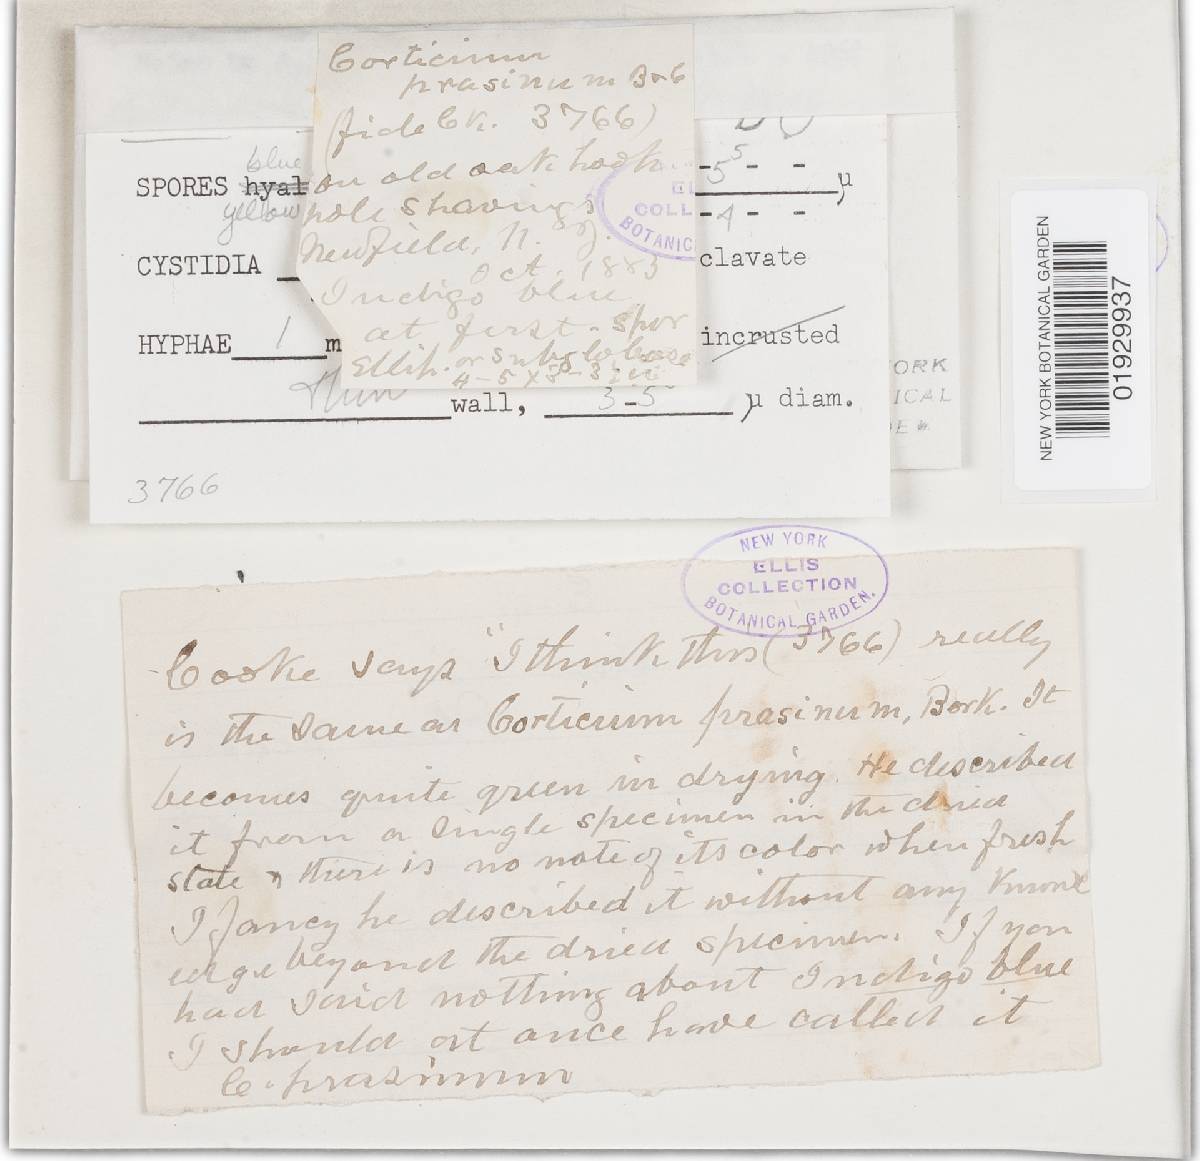 Corticium
prasinum B&C
(fide Ck. 3766)
on old oak hoop
pole shavings
Newfield, N. J.
Oct. 1883
Indigo blue
at first. Spor
Ellip. or subglobose
blue
SPORES hyal
yellow
- 5 5 - - µ
- 4 - -
CYSTIDIA
clavate
HYPHAE 1 m
incrusted
thin wall, 3-5 µ diam.
3766
ORK
ICAL
DEN
NEW YORK BOTANICAL GARDEN
01929937
EL
COLL
BOTANIC
NEW YORK
ELLIS
COLLECTION
BOTANICAL GARDEN.
Cooke says "I think this (3766) really
is the same as Corticium prasinum, Berk. It
becomes quite green in drying. He described
it from a single specimen in the dried
state & there is no note of its color when fresh
I fancy he described it without any knowl
edge beyond the dried specimen. If you
had said nothing about Indigo blue
I should at once have called it
C. prasinum